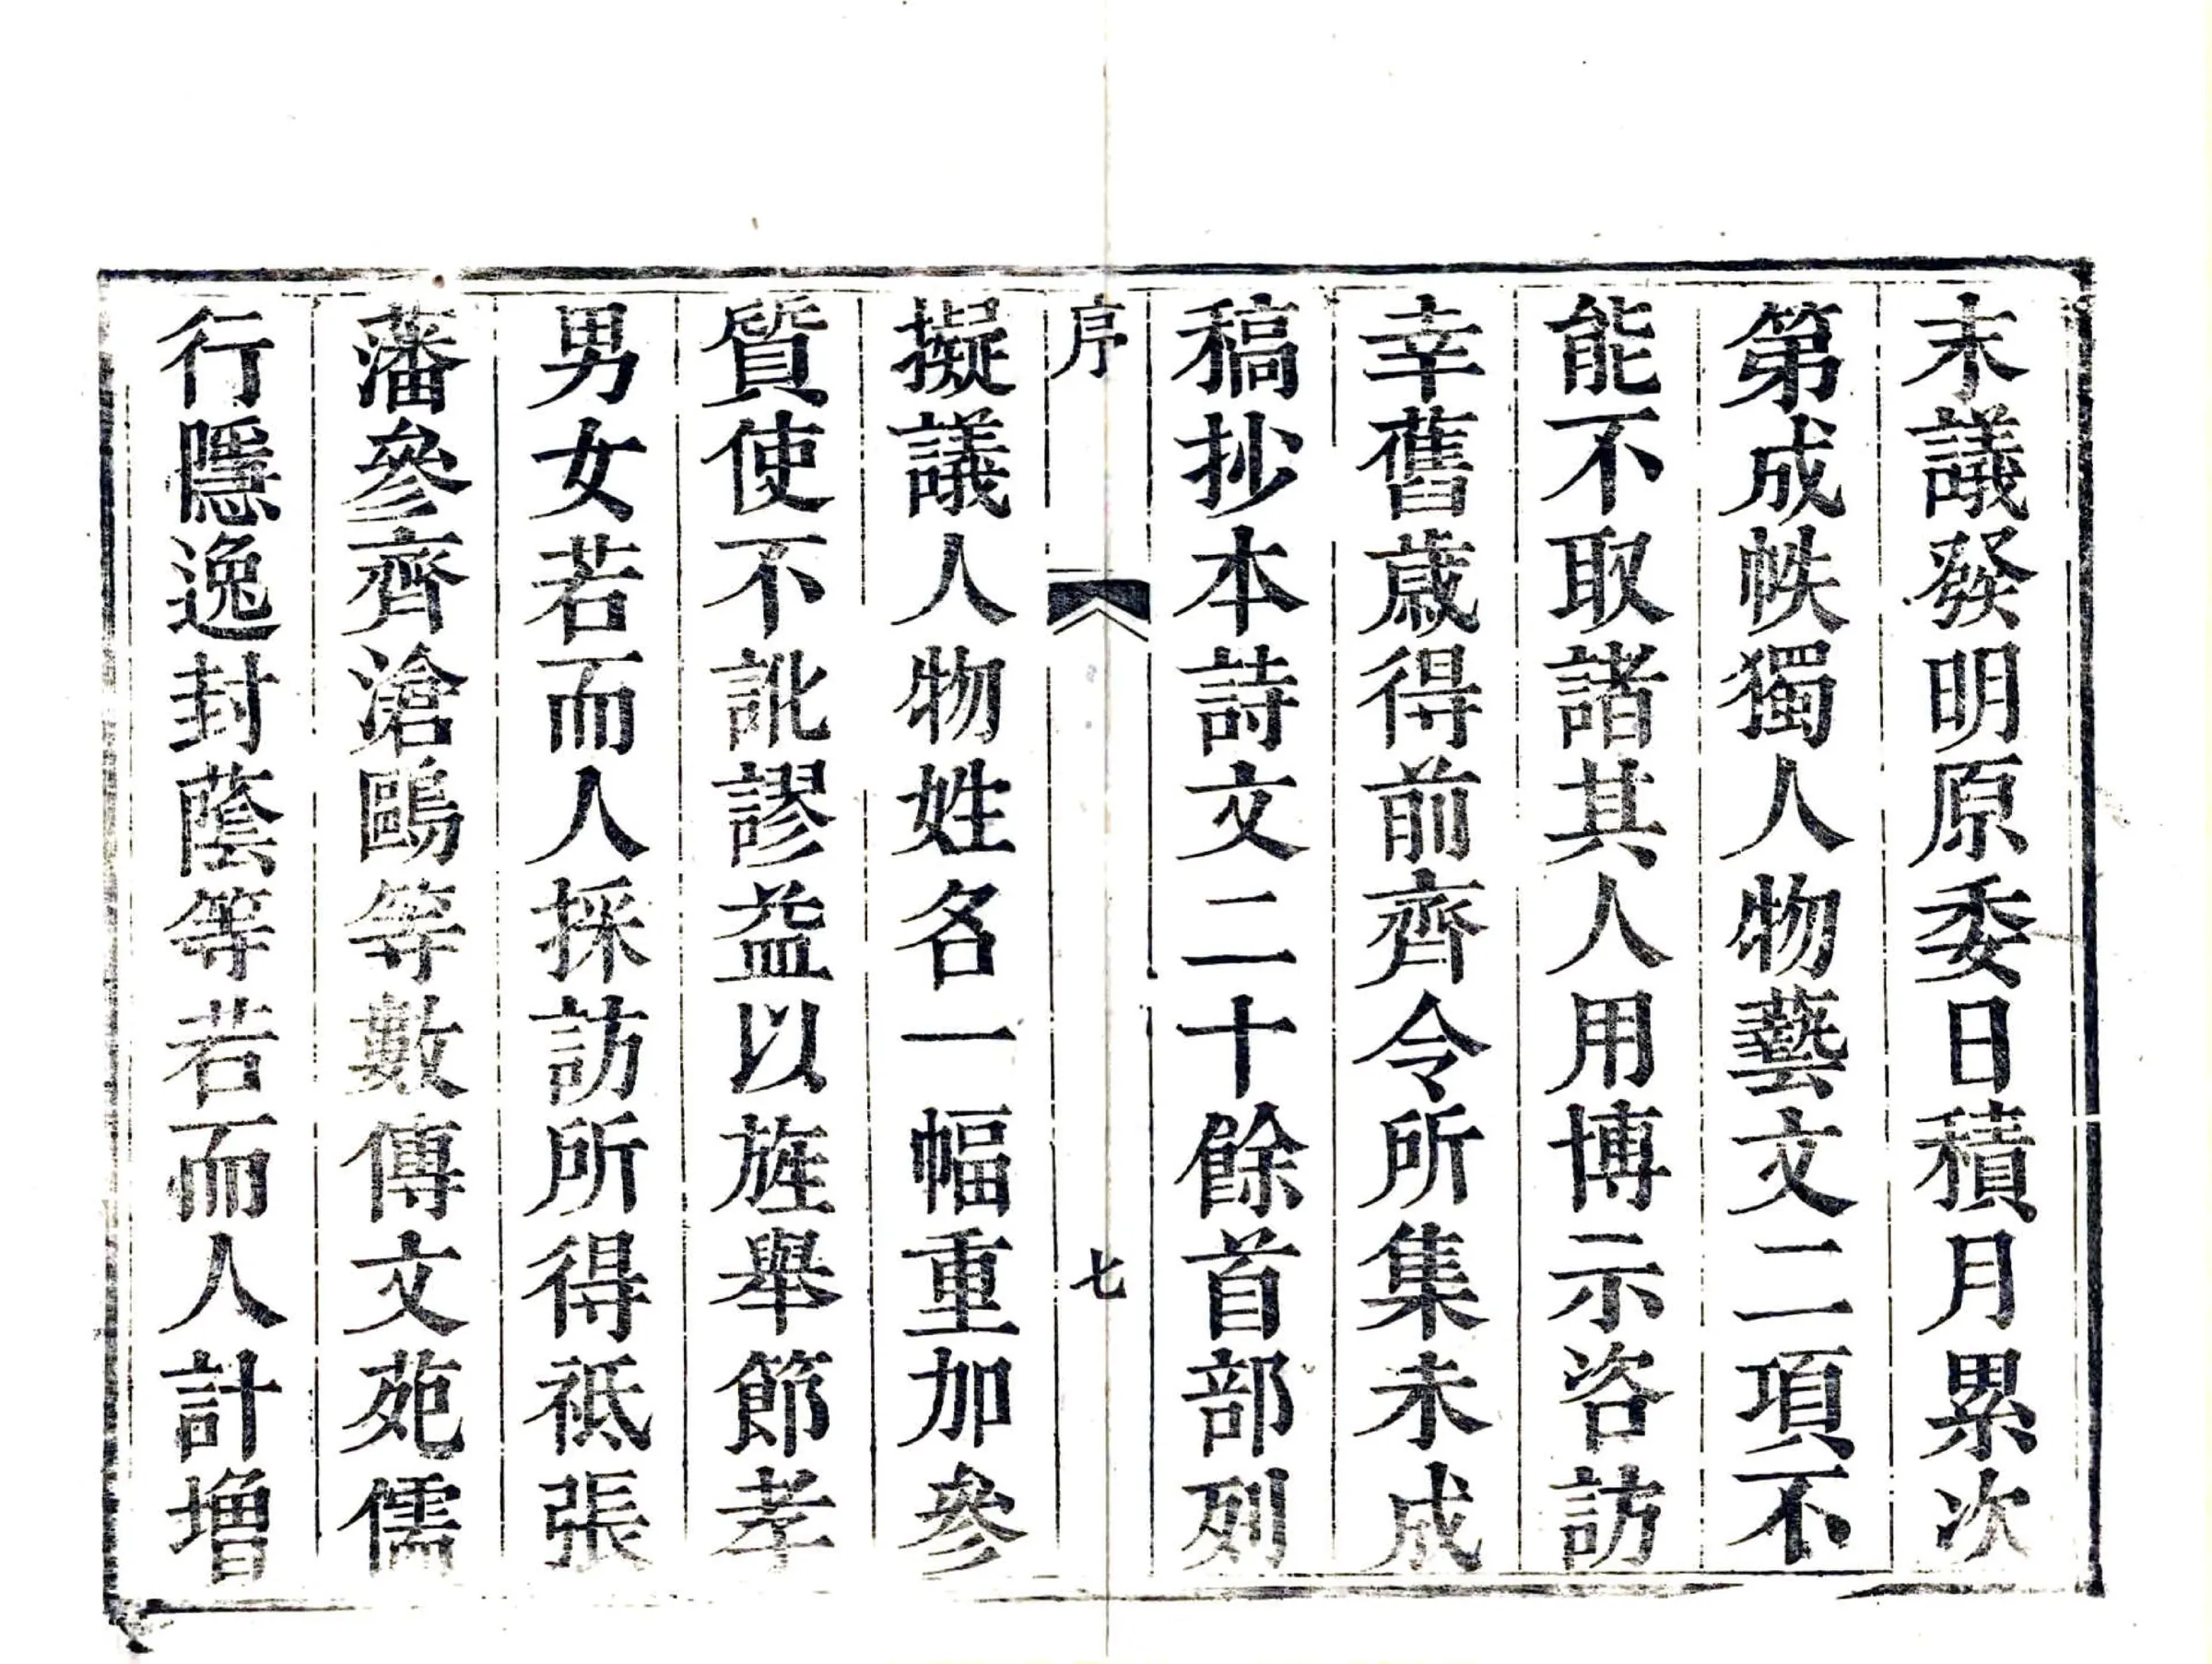 末議發明原委日積月累次
第成帙獨人物藝文二項不
能不取諸其人用博示咨訪
幸舊歳得前齊令所集未成
稿抄本詩文二十餘首部列
序
七
擬議人物姓名一幅重加參
質使不訛謬益以旌舉節孝
男女若而人採訪所得祗張
藩參齊滄鷗等數傳文苑儒
行隱逸封蔭等若而人計增